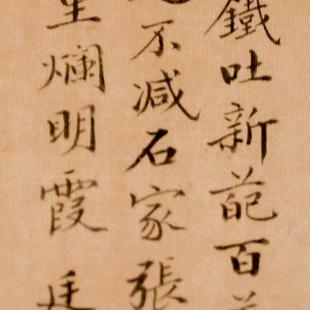 鐵吐新葩百
不減石家張
爛明霞